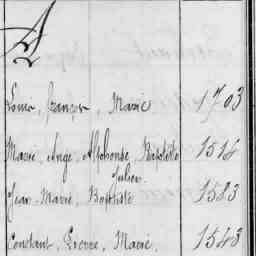 A
Louis, François, Marie 1703
Marie Ange, Alphonse, Baptiste 1516
Julien
Jean Marie, Baptiste 1583
Constant, Pierre, Marie, 1543